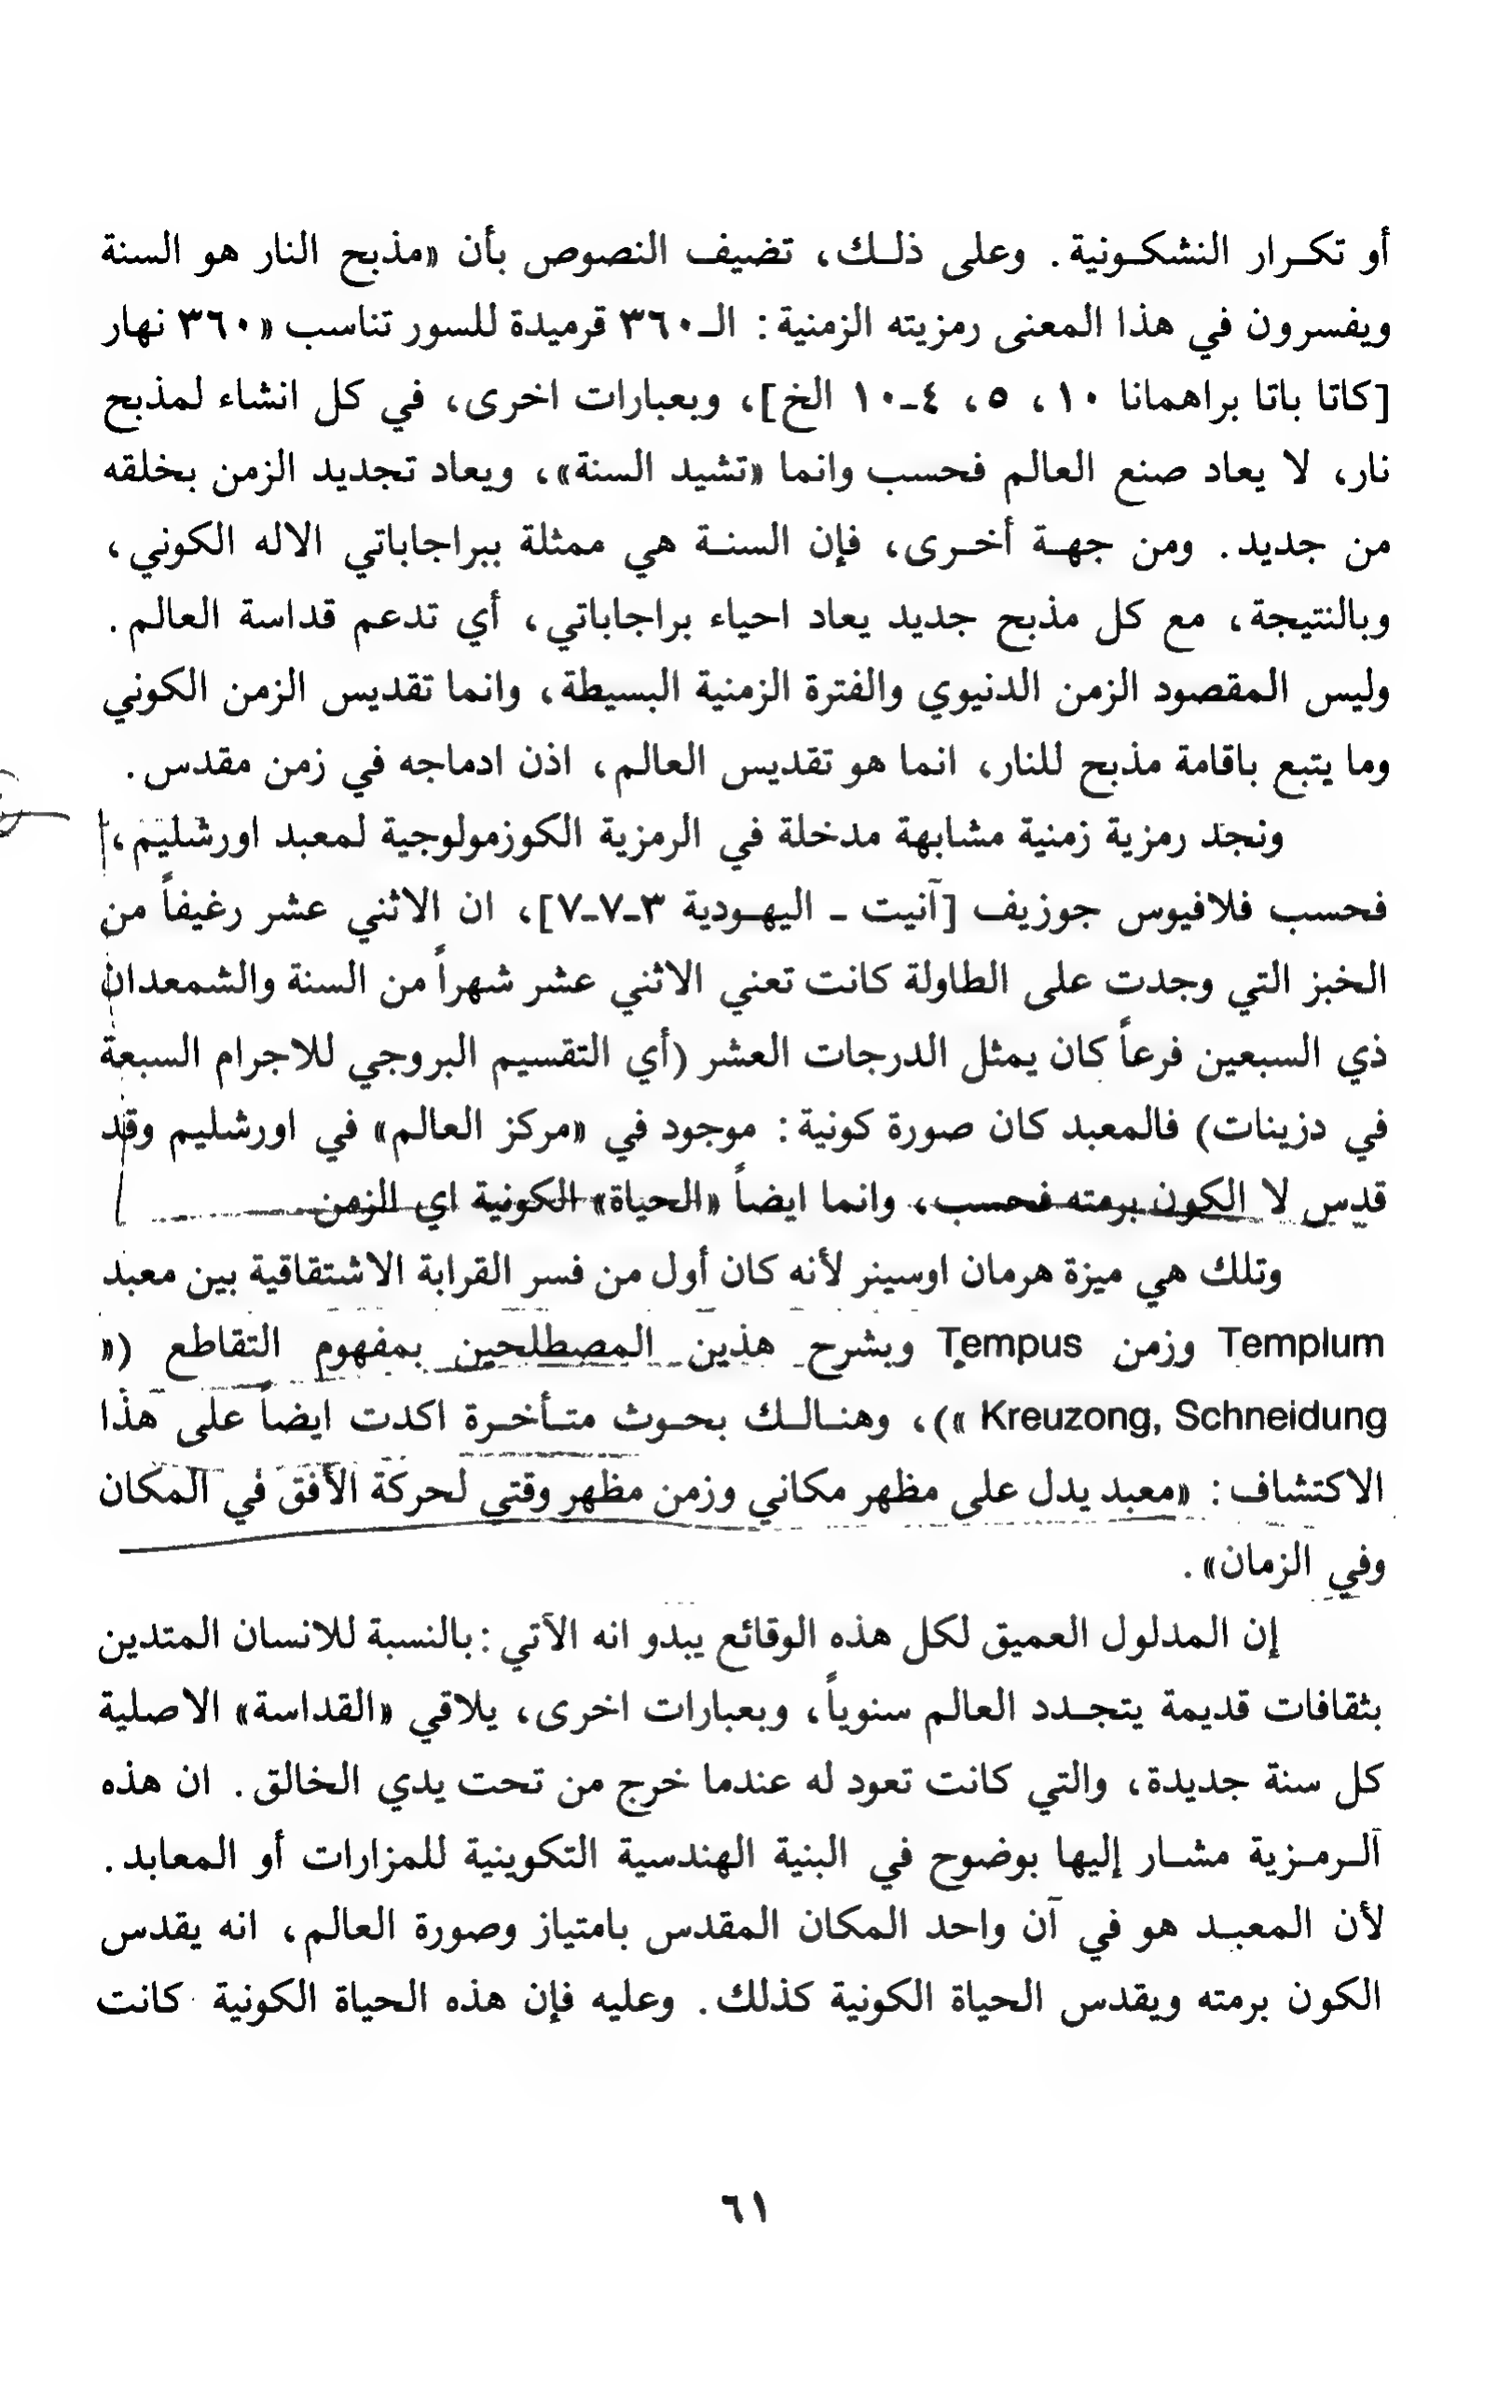 أو تكرار النشكونية. وعلى ذلك، تضيف النصوص بأن «مذبح النار هو السنة
ويفسرون في هذا المعنى رمزيته الزمنية: الـ٣٦٠ قرميدة للسور تناسب «٣٦٠ نهار
[كاتا باتا براهمانا ١٠، ٥، ٤ـ١٠ الخ]، وبعبارات اخرى، في كل انشاء لمذبح
نار، لا يعاد صنع العالم فحسب وانما «تشيد السنة»، ويعاد تجديد الزمن بخلقه
من جديد. ومن جهة أخرى، فإن السنة هي ممثلة ببراجاباتي الاله الكوني،
وبالنتيجة، مع كل مذبح جديد يعاد احياء براجاباتي، أي تدعم قداسة العالم.
وليس المقصود الزمن الدنيوي والفترة الزمنية البسيطة، وانما تقديس الزمن الكوني
وما يتبع باقامة مذبح للنار، انما هو تقديس العالم، اذن ادماجه في زمن مقدس.
ونجد رمزية زمنية مشابهة مدخلة في الرمزية الكوزمولوجية لمعبد اورشليم،
فحسب فلافيوس جوزيف [آنيت ـ اليهودية ٣ـ٧ـ٧]، ان الاثني عشر رغيفاً من
الخبز التي وجدت على الطاولة كانت تعني الاثني عشر شهراً من السنة والشمعدان
ذي السبعين فرعاً كان يمثل الدرجات العشر (أي التقسيم البروجي للاجرام السبعة
في دزينات) فالمعبد كان صورة كونية: موجود في «مركز العالم» في اورشليم وقد
قدس لا الكون برمته فحسب، وانما ايضاً «الحياة» الكونية اي الزمن
وتلك هي ميزة هرمان اوسينر لأنه كان أول من فسر القرابة الاشتقاقية بين معبد
Templum وزمن Tempus وبشرح هذين المصطلحين بمفهوم التقاطع («
Kreuzong, Schneidung »)، وهنالك بحوث متأخرة اكدت ايضاً على هذا
الاكتشاف: «معبد يدل على مظهر مكاني وزمن مظهر وقتي لحركة الأفق في المكان
وفي الزمان».
إن المدلول العميق لكل هذه الوقائع يبدو انه الآتي: بالنسبة للانسان المتدين
بثقافات قديمة يتجدد العالم سنوياً، وبعبارات اخرى، يلاقي «القداسة» الاصلية
كل سنة جديدة، والتي كانت تعود له عندما خرج من تحت يدي الخالق. ان هذه
الرمزية مشار إليها بوضوح في البنية الهندسية التكوينية للمزارات أو المعابد.
لأن المعبد هو في آن واحد المكان المقدس بامتياز وصورة العالم، انه يقدس
الكون برمته ويقدس الحياة الكونية كذلك. وعليه فإن هذه الحياة الكونية كانت
٦١